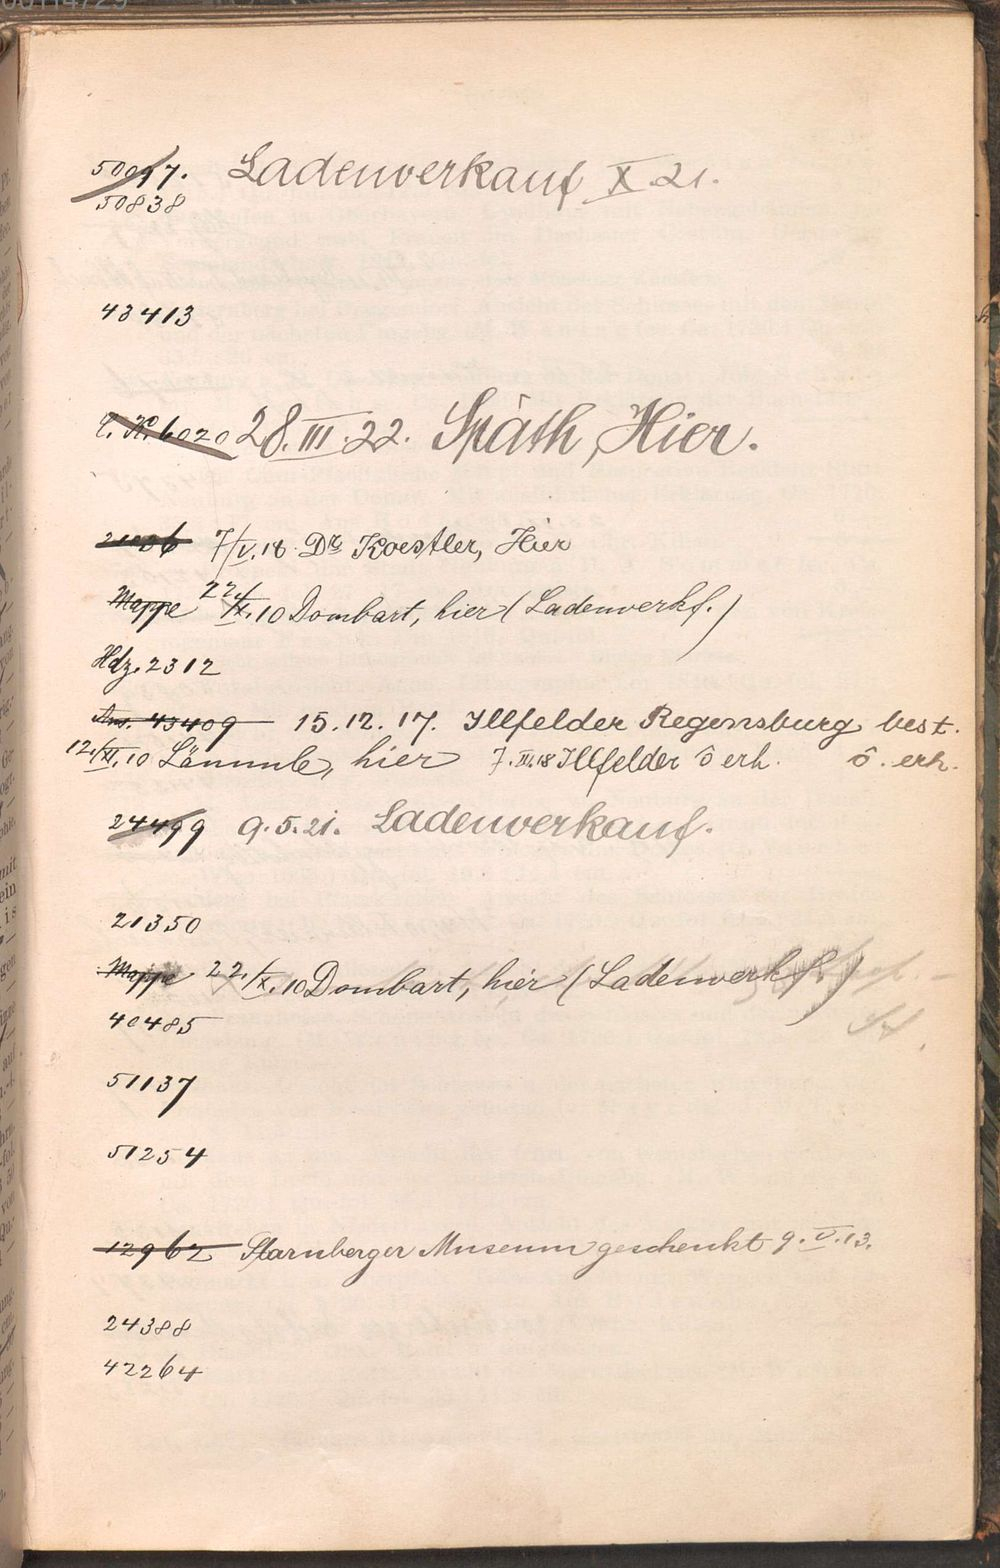 50017. Ladenverkauf X. 21.
50838
43413
28. III. 22. Späth, Hier.
7/V. 18 Dr Koestler, Hier
Mappe 22/IX. 10 Dombart, hier (Ladenverkf.)
Hdz. 2312
Ans. 43409 15.12.17. Illfelder Regensburg best.
12./XI. 10 Lämmle, hier 7. III. 18 Illfelder ô erh. ô. erh.
24499 9.5.21. Ladenverkauf.
21350
Mappe 22./IX. 10 Dombart, hier (Ladenverkf.)
40485
51137
51254
12962 Starnberger Museum geschenkt 9. V. 13.
24388
42264